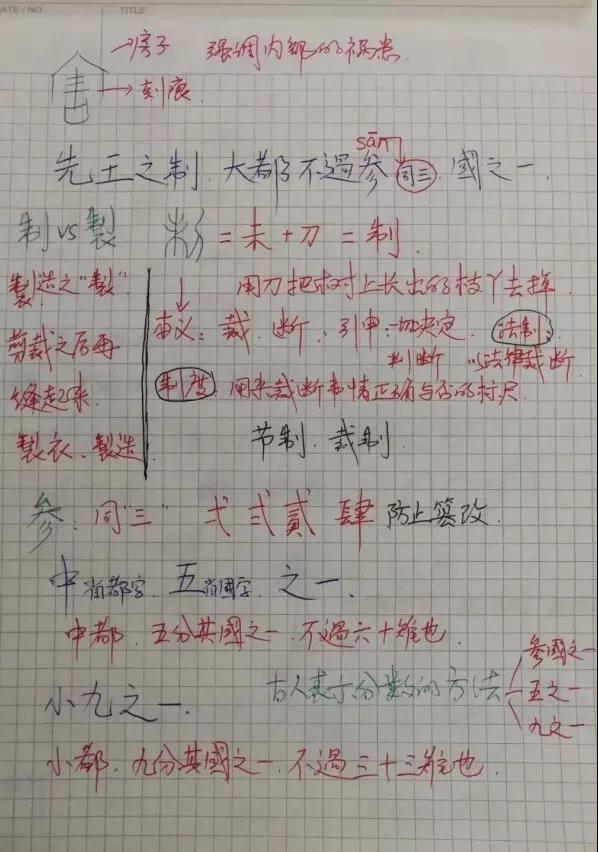 DATE / NO. TITLE
→房子 强调内部的祸患.
→刻痕.
sān
先王之制.大都不過参 同三.國之一.
制 vs 製 = 未 + 刀 = 制.
製造之"製". 用刀把树上长出的枝丫去掉.
剪裁之后再 本义:裁、断、引申:一切决定. 法制
判断 以法律裁断
缝起来. 制度 用来裁断事情正确与否的村尺.
製衣、製造 节制.裁制
参:同"三" 弌 弍 貳 肆 防止篡改.
中省都字.五省國字.之一.
中都.五分其國之一.不過六十雉也.
小九之一. 古人表示分数的方法
参國之一
五之一
九之一
小都.九分其國之一.不過三十三雉也.